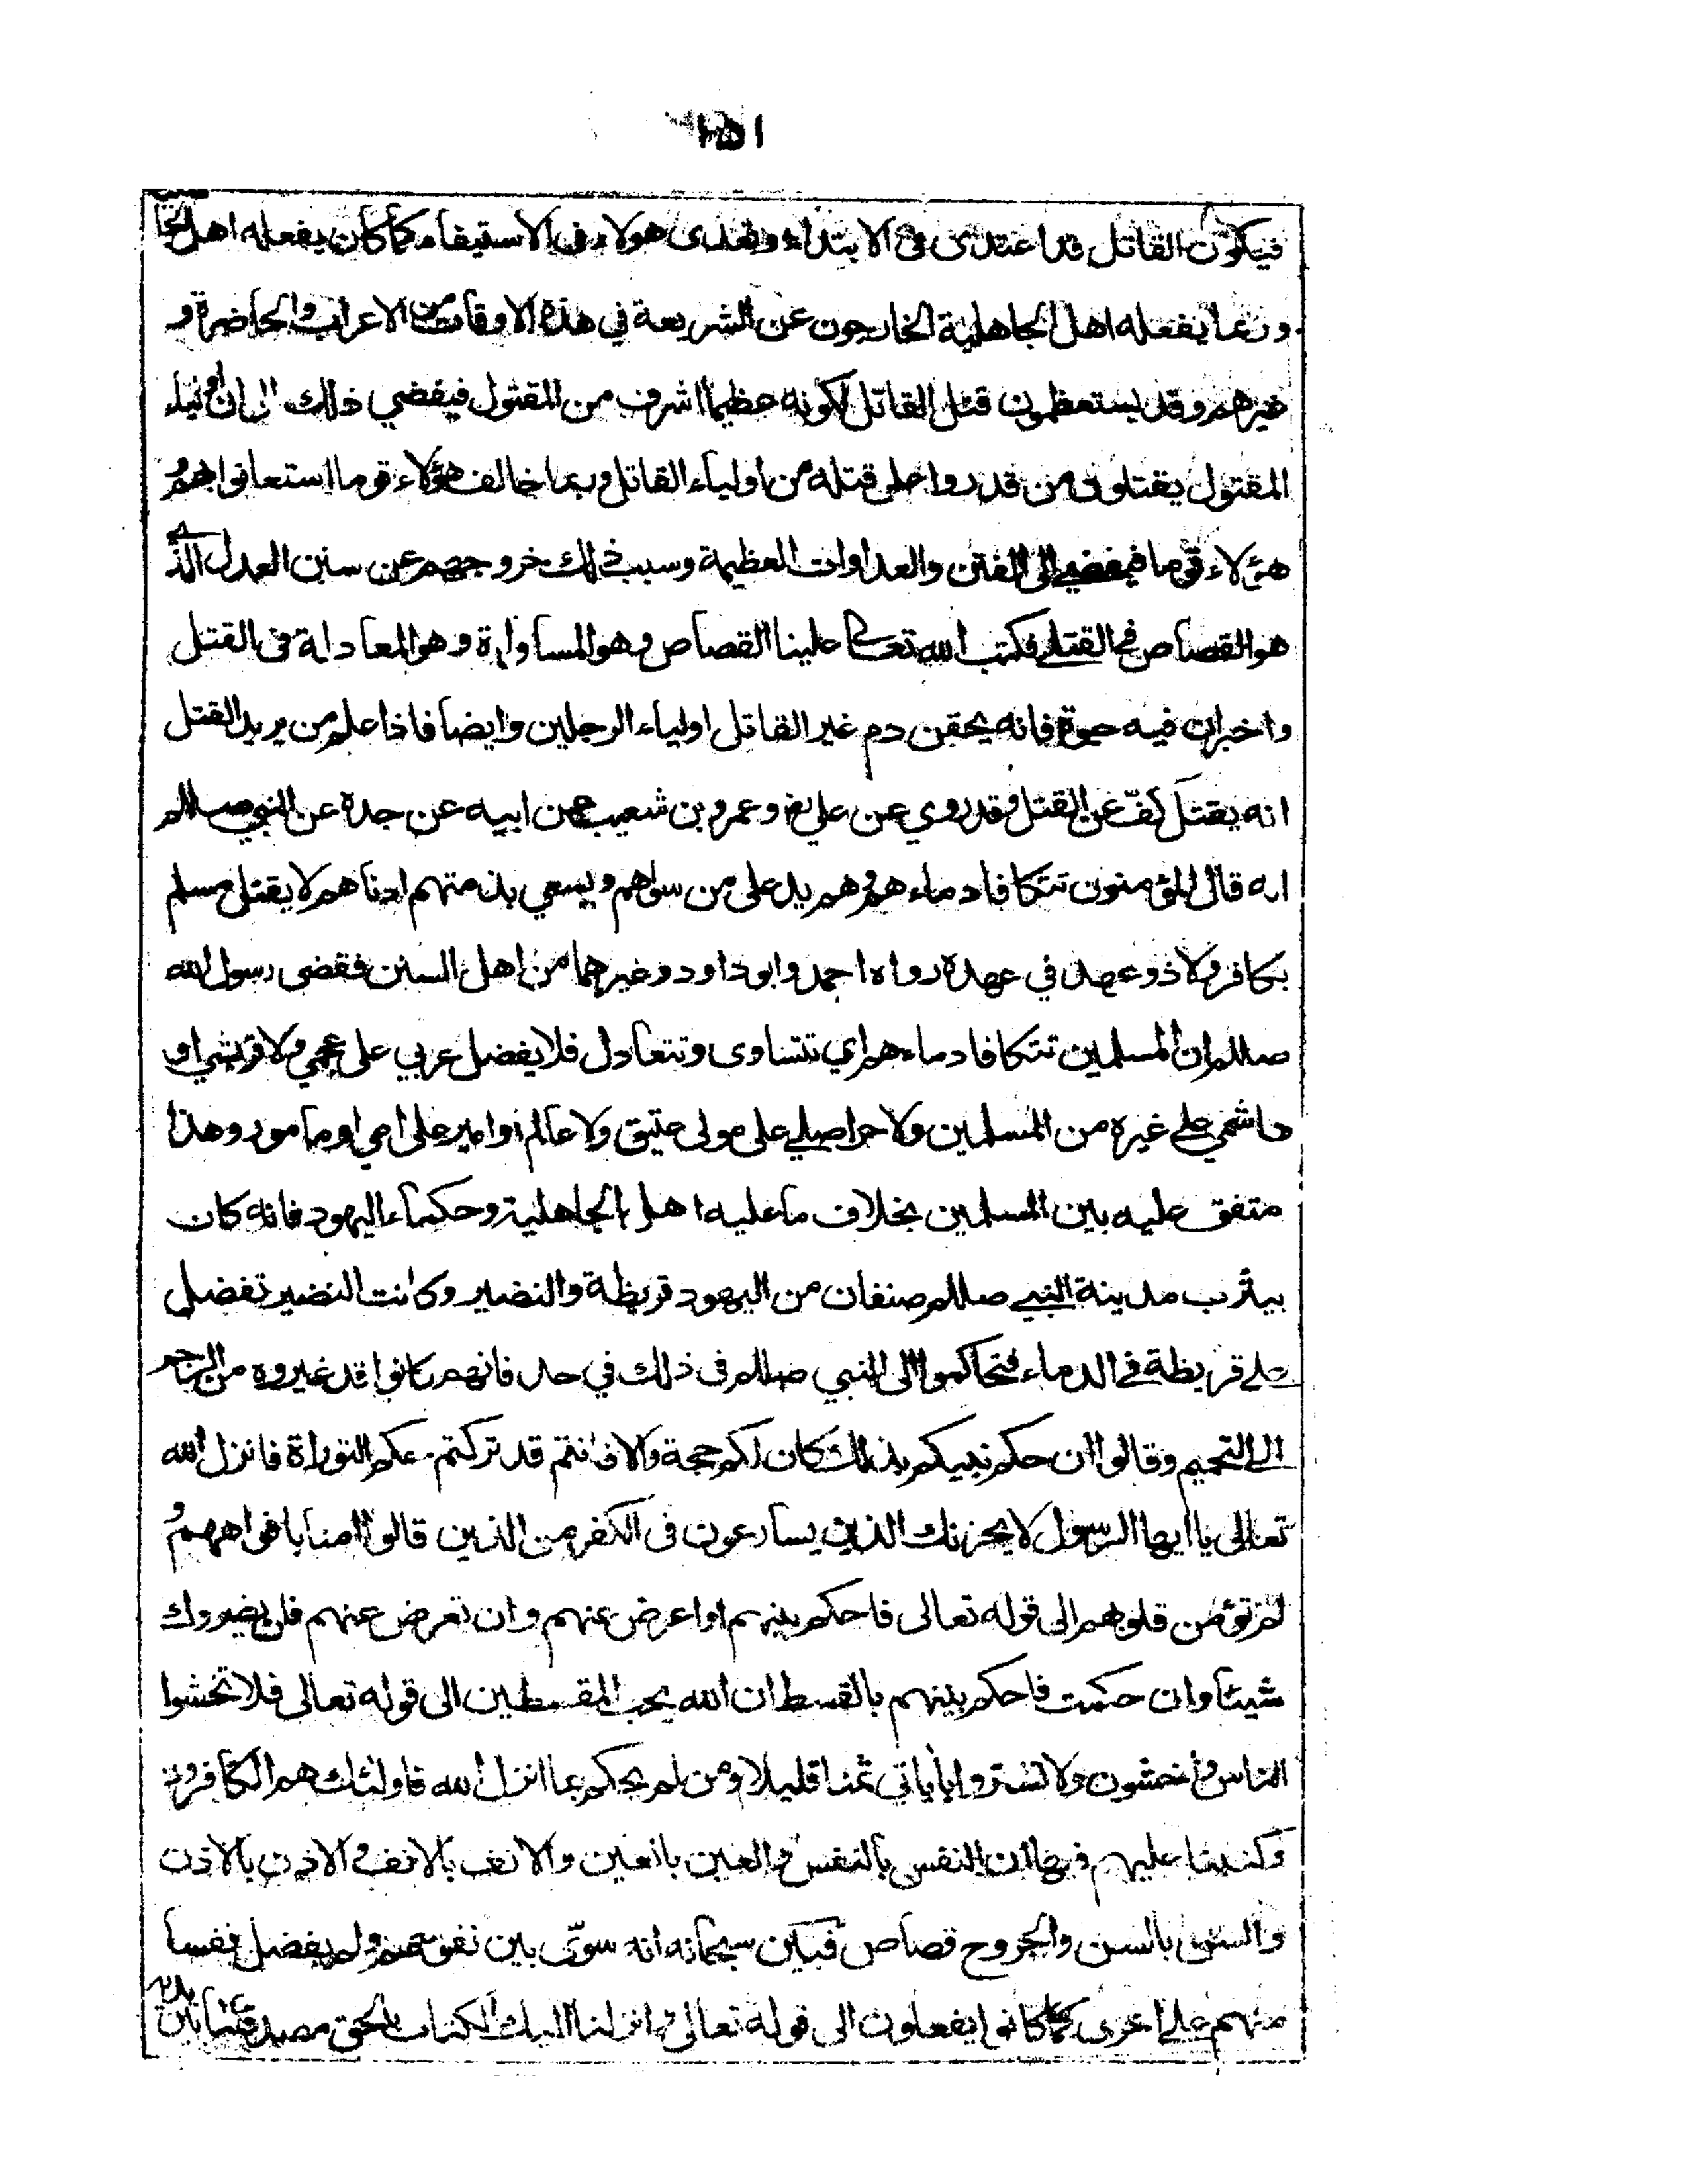 ١٥١
فيكون القاتل قد اعتدى في الابتداء وتعدى هولاء في الاستيفاء كما كان يفعله اهل الجا
وربما يفعله اهل الجاهلية الخارجون عن الشريعة في هذه الاوقات من الاعراب والحاضرة و
غيرهم وقد يستعظمون قتل القاتل لكونه عظيما اشرف من المقتول فيفضي ذلك الى ان اولياء
المقتول يقتلون من قدروا على قتله من اولياء القاتل وربما حالف هؤلاء قوما استعانوا بهم و
هؤلاء قوما فيفضي الى الفتن والعداوات العظيمة وسبب ذلك خروجهم عن سنن العدل الذي
هو القصاص في القتلى فكتب الله تعالى علينا القصاص وهو المساواة وهو المعادلة في القتل
واخبر ان فيه حيوة فانه يحقن دم غير القاتل اولياء الرجلين وايضا فاذا علم من يريد القتل
انه يقتل كفّ عن القتل وقد روي عن علي رض وعمرو بن شعيب عن ابيه عن جده عن النبي صللم
انه قال المؤمنون تتكافا دماءهم وهم يد على من سواهم ويسعي بذمتهم ادناهم لا يقتل مسلم
بكافر ولا ذو عهد في عهده رواه احمد وابو داود وغيرهما من اهل السنن فقضى رسول الله
صللم ان المسلمين تتكافا دماءهم اي تتساوى وتتعادل فلا يفضل عربي على عجمي ولا قريشي او
هاشمي على غيره من المسلمين ولا حر اصلي على مولى عتيق ولا عالم او امير على امي او مامور وهذا
متفق عليه بين المسلمين بخلاف ما عليه اهل الجاهلية وحكماء اليهود فانه كان
بيثرب مدينة النبي صللم صنفان من اليهود قريظة والنضير وكانت النضير تفضل
على قريظة في الدماء فتحاكموا الى النبي صللم في ذلك في حد فانهم كانوا قد غيروه من الرجم
الى التحميم وقالوا ان حكم نبيكم بذلك كان لكم حجة والا فانتم قد تركتم حكم التوراة فانزل الله
تعالى يا ايها الرسول لا يحزنك الذين يسارعون في الكفر من الذين قالوا امنا بافواههم و
لم تؤمن قلوبهم الى قوله تعالى فاحكم بينهم او اعرض عنهم وان تعرض عنهم فلن يضروك
شيئا وان حكمت فاحكم بينهم بالقسط ان الله يحب المقسطين الى قوله تعالى فلا تخشوا
الناس واخشون ولا تشتروا باياتي ثمنا قليلا ومن لم يحكم بما انزل الله فاولئك هم الكافرون
وكتبنا عليهم فيها ان النفس بالنفس والعين بالعين والانف بالانف والاذن بالاذن
والسن بالسن والجروح قصاص فبين سبحانه انه سوّى بين نفوسهم ولم يفضل نفسا
منهم على اخرى كما كانوا يفعلون الى قوله تعالى وانزلنا اليك الكتاب بالحق مصدقا لما بين يديه